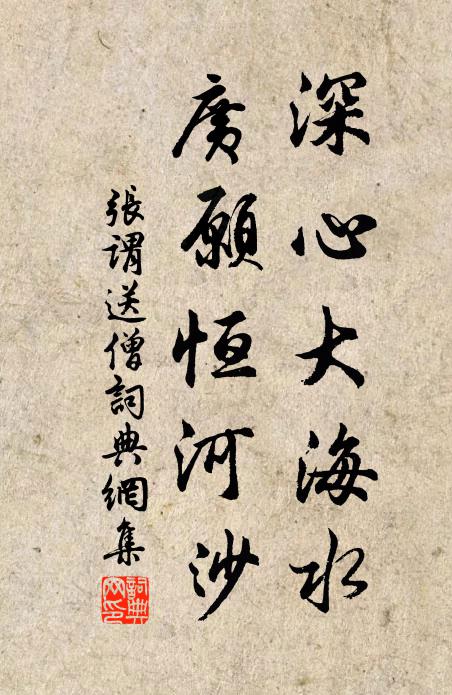 深心大海水
廣願恒河沙
張謂送僧詞典網集
詞典網印